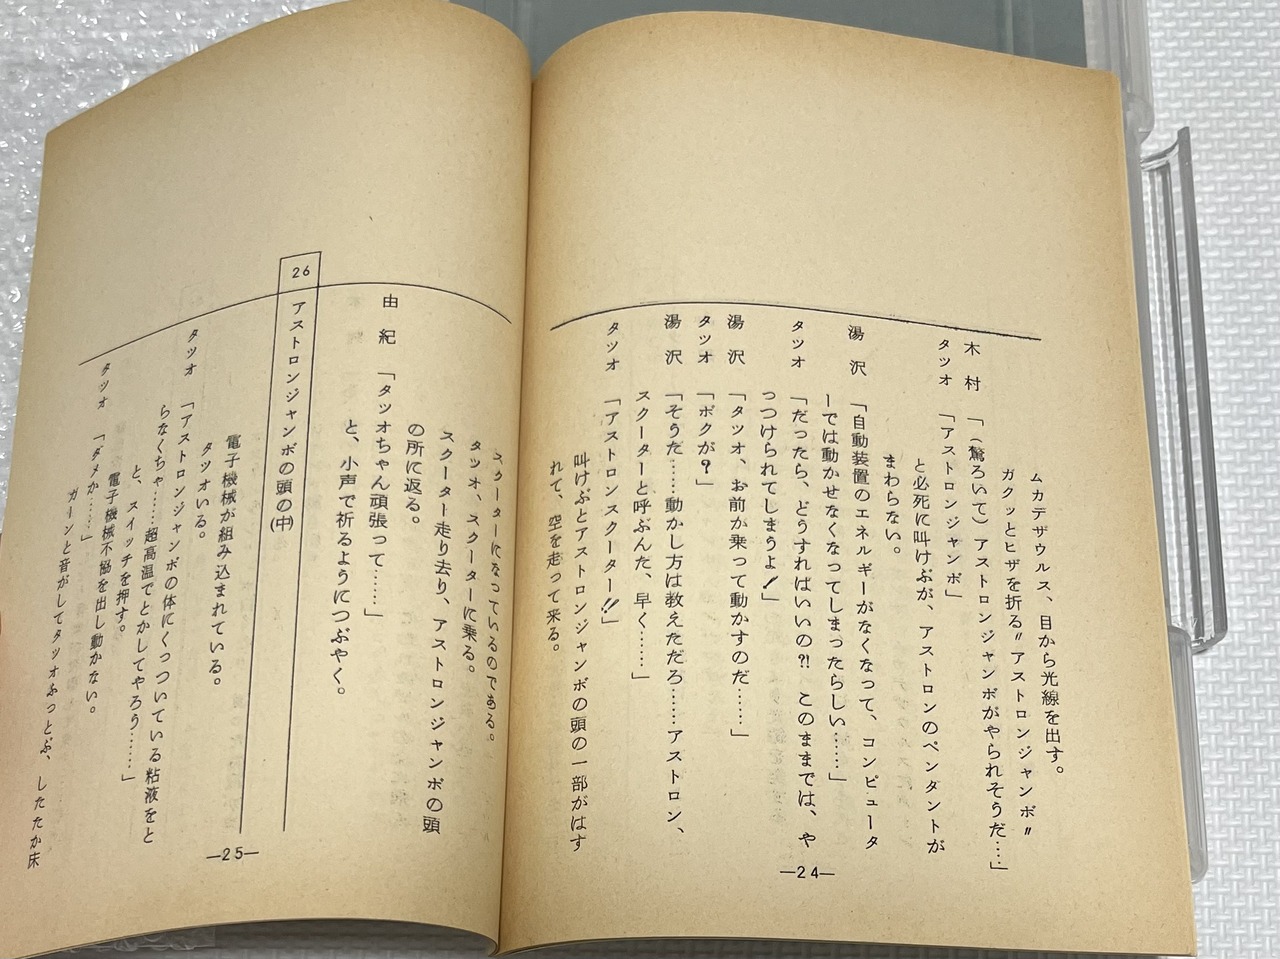 ムカデザウルス、目から光線を出す。
ガクッとヒザを折る〃アストロンジャンボ〃
木村　「（驚ろいて）アストロンジャンボがやられそうだ……」
タツオ　「アストロンジャンボ」
と必死に叫けぶが、アストロンのペンダントが
まわらない。
湯沢　「自動装置のエネルギーがなくなって、コンピュータ
ーでは動かせなくなってしまったらしい……」
タツオ　「だったら、どうすればいいの?!　このままでは、や
っつけられてしまうよ！」
湯沢　「タツオ、お前が乗って動かすのだ……」
タツオ　「ボクが？」
湯沢　「そうだ……動かし方は教えただろ……アストロン、
スクーターと呼ぶんた、早く……」
タツオ　「アストロンスクーター!!」
叫けぶとアストロンジャンボの頭の一部がはす
れて、空を走って来る。
—24—
スクーターになっているのである。
タツオ、スクーターに乗る。
スクーター走り去り、アストロンジャンボの頭
の所に返る。
由紀　「タツオちゃん頑張って……」
と、小声で祈るようにつぶやく。
26　アストロンジャンボの頭の(中)
電子機械が組み込まれている。
タツオいる。
タツオ　「アストロンジャンボの体にくっついている粘液をと
らなくちゃ……超高温でとかしてやろう……」
と、スイッチを押す。
電子機械不協を出し動かない。
タツオ　「ダメか……」
ガーンと音がしてタツオふっとぶ、したたか床
—25—